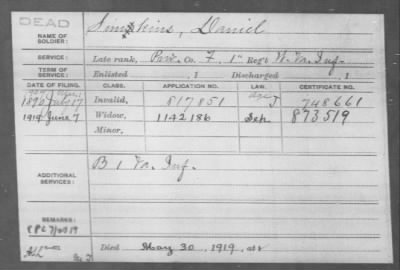 DEAD
NAME OF SOLDIER: Simpkins, Daniel
SERVICE: Late rank, Priv. Co. F, 1" Reg't W. Va. Inf.
TERM OF SERVICE: Enlisted , 1 Discharged , 1
DATE OF FILING. CLASS. APPLICATION NO. LAW. CERTIFICATE NO.
July 17 Invalid, 817851 J 748661
1919 June 7 Widow, 1142186 Sep 873519
Minor,
ADDITIONAL SERVICES: B 1 Va. Inf.
REMARKS:
Died May 30, 1919, at